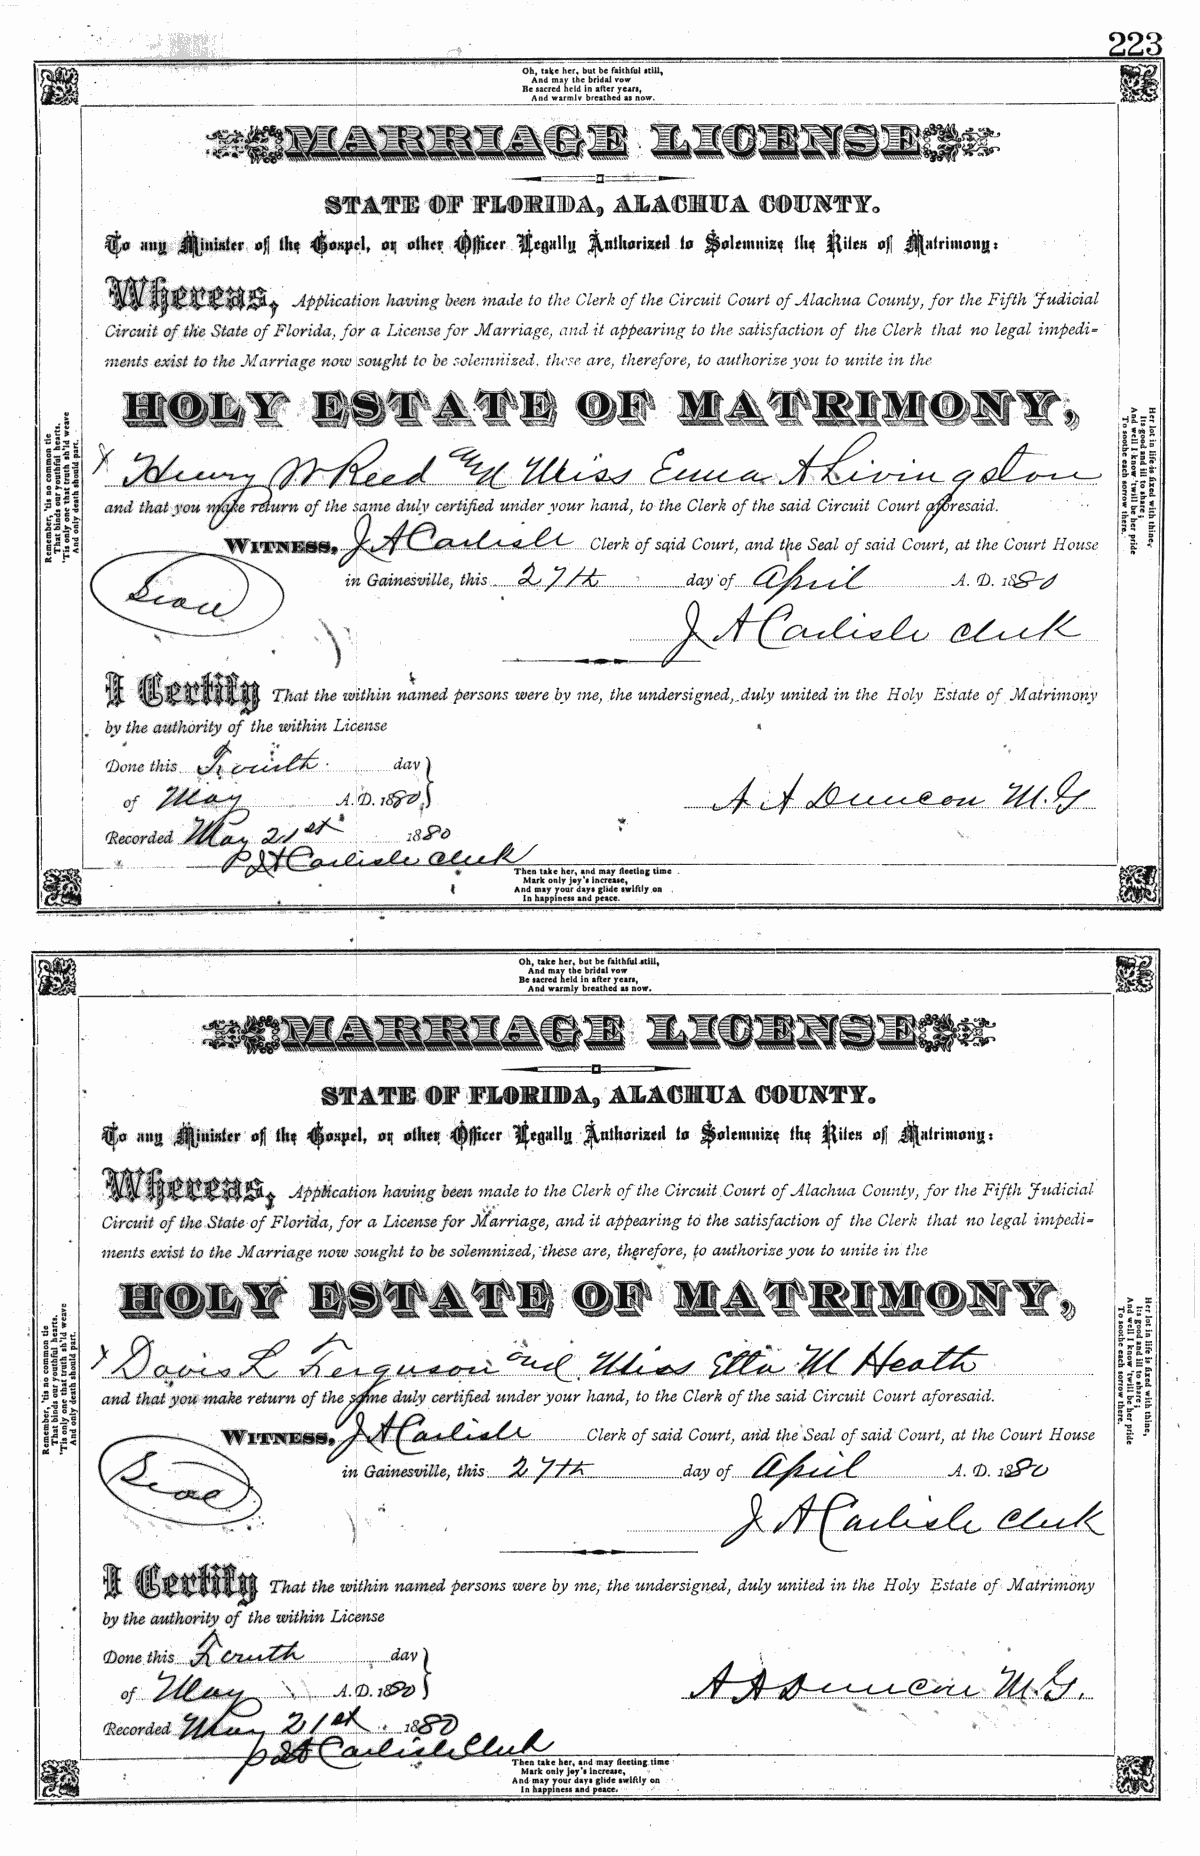 223
Oh, take her, but be faithful still,
And may the bridal vow
Be sacred held in after years,
And warmly breathed as now.
MARRIAGE LICENSE
STATE OF FLORIDA, ALACHUA COUNTY.
To any Minister of the Gospel, or other Officer Legally Authorized to Solemnize the Rites of Matrimony:
Whereas, Application having been made to the Clerk of the Circuit Court of Alachua County, for the Fifth Judicial
Circuit of the State of Florida, for a License for Marriage, and it appearing to the satisfaction of the Clerk that no legal impedi-
ments exist to the Marriage now sought to be solemnized, these are, therefore, to authorize you to unite in the
HOLY ESTATE OF MATRIMONY,
x Henry W Reed and Miss Emma A Livingston
and that you make return of the same duly certified under your hand, to the Clerk of the said Circuit Court aforesaid.
WITNESS, J A Carlisle Clerk of said Court, and the Seal of said Court, at the Court House
in Gainesville, this 27th day of April A. D. 1880
Seal
J A Carlisle Clerk
I Certify That the within named persons were by me, the undersigned, duly united in the Holy Estate of Matrimony
by the authority of the within License
Done this Fourth day
of May A. D. 1880
A A Duncan M.G
Recorded May 21st 1880
J A Carlisle Clerk
Then take her, and may fleeting time
Mark only joy's increase,
And may your days glide swiftly on
In happiness and peace.
Remember, 'tis no common tie
That binds our youthful hearts,
'Tis only one that truth sh'ld weave
And only death should part.
Her lot in life is fixed with thine,
Its good and ill to share;
And well I know 'twill be her pride
To soothe each sorrow there.
Oh, take her, but be faithful still,
And may the bridal vow
Be sacred held in after years,
And warmly breathed as now.
MARRIAGE LICENSE
STATE OF FLORIDA, ALACHUA COUNTY.
To any Minister of the Gospel, or other Officer Legally Authorized to Solemnize the Rites of Matrimony:
Whereas, Application having been made to the Clerk of the Circuit Court of Alachua County, for the Fifth Judicial
Circuit of the State of Florida, for a License for Marriage, and it appearing to the satisfaction of the Clerk that no legal impedi-
ments exist to the Marriage now sought to be solemnized, these are, therefore, to authorize you to unite in the
HOLY ESTATE OF MATRIMONY,
x Davis L Ferguson and Miss Etta M Heath
and that you make return of the same duly certified under your hand, to the Clerk of the said Circuit Court aforesaid.
WITNESS, J A Carlisle Clerk of said Court, and the Seal of said Court, at the Court House
in Gainesville, this 27th day of April A. D. 1880
Seal
J A Carlisle Clerk
I Certify That the within named persons were by me, the undersigned, duly united in the Holy Estate of Matrimony
by the authority of the within License
Done this Fourth day
of May A. D. 1880
A A Duncan M.G.
Recorded May 21st 1880
J A Carlisle Clerk
Then take her, and may fleeting time
Mark only joy's increase,
And may your days glide swiftly on
In happiness and peace.
Remember, 'tis no common tie
That binds our youthful hearts,
'Tis only one that truth sh'ld weave
And only death should part.
Her lot in life is fixed with thine,
Its good and ill to share;
And well I know 'twill be her pride
To soothe each sorrow there.